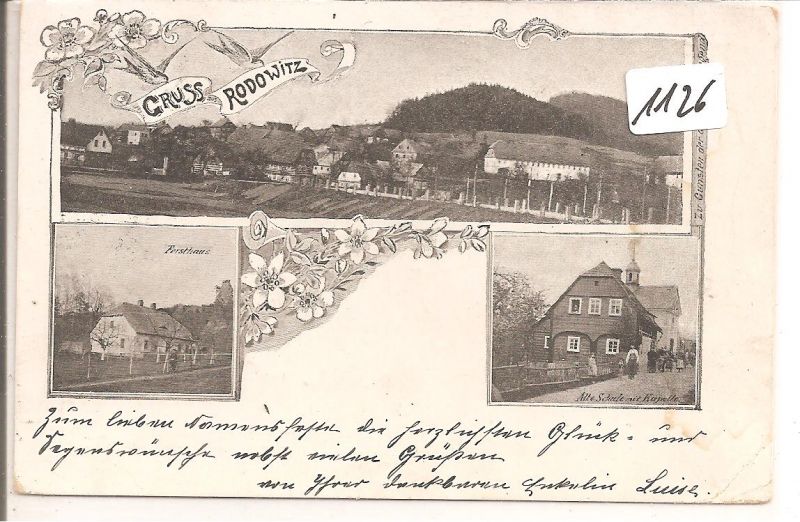 GRUSS
RODOWITZ
1126
Zu Gunsten der
Forsthaus
Alte Schule mit Kapelle
Zum lieben Namensfeste die herzlichsten Glück- und
Segenswünsche nebst vielen Grüßen
von Ihrer dankbaren Enkelin Luise.